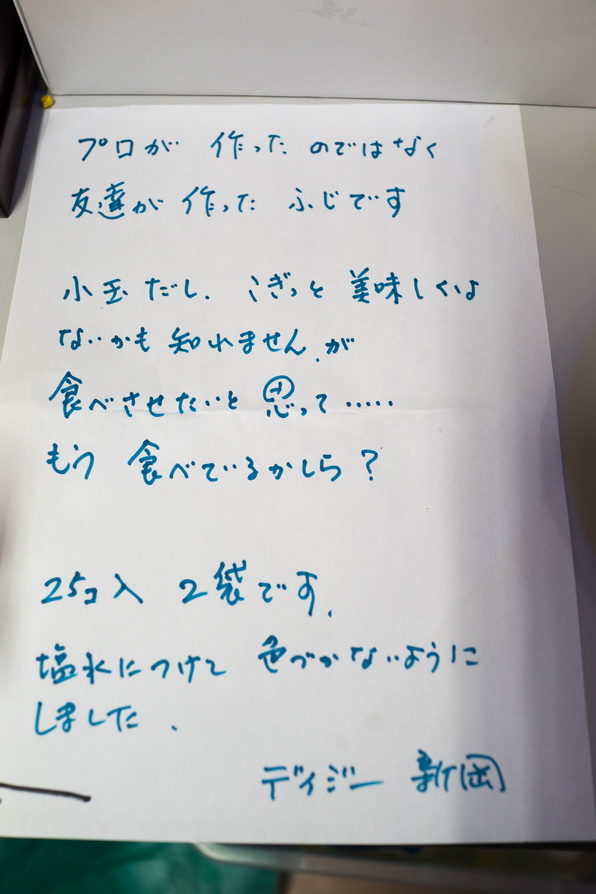 プロが 作ったのではなく
友達が 作った ふじです
小玉だし. こぎっと 美味しくは
ないかも知れません.が
食べさせたいと 思って‥‥‥
もう 食べているかしら?
25コ入 2袋です.
塩水につけて 色づかないように
しました.
デイジー 新岡